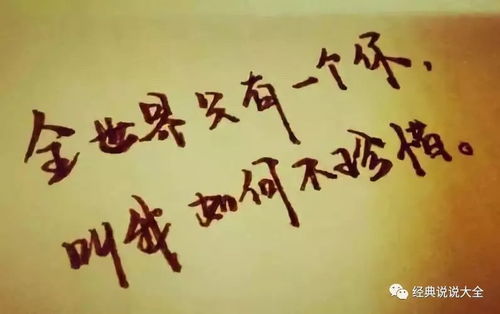 全世界只有一个你、
叫我如何不珍惜。
经典说说大全